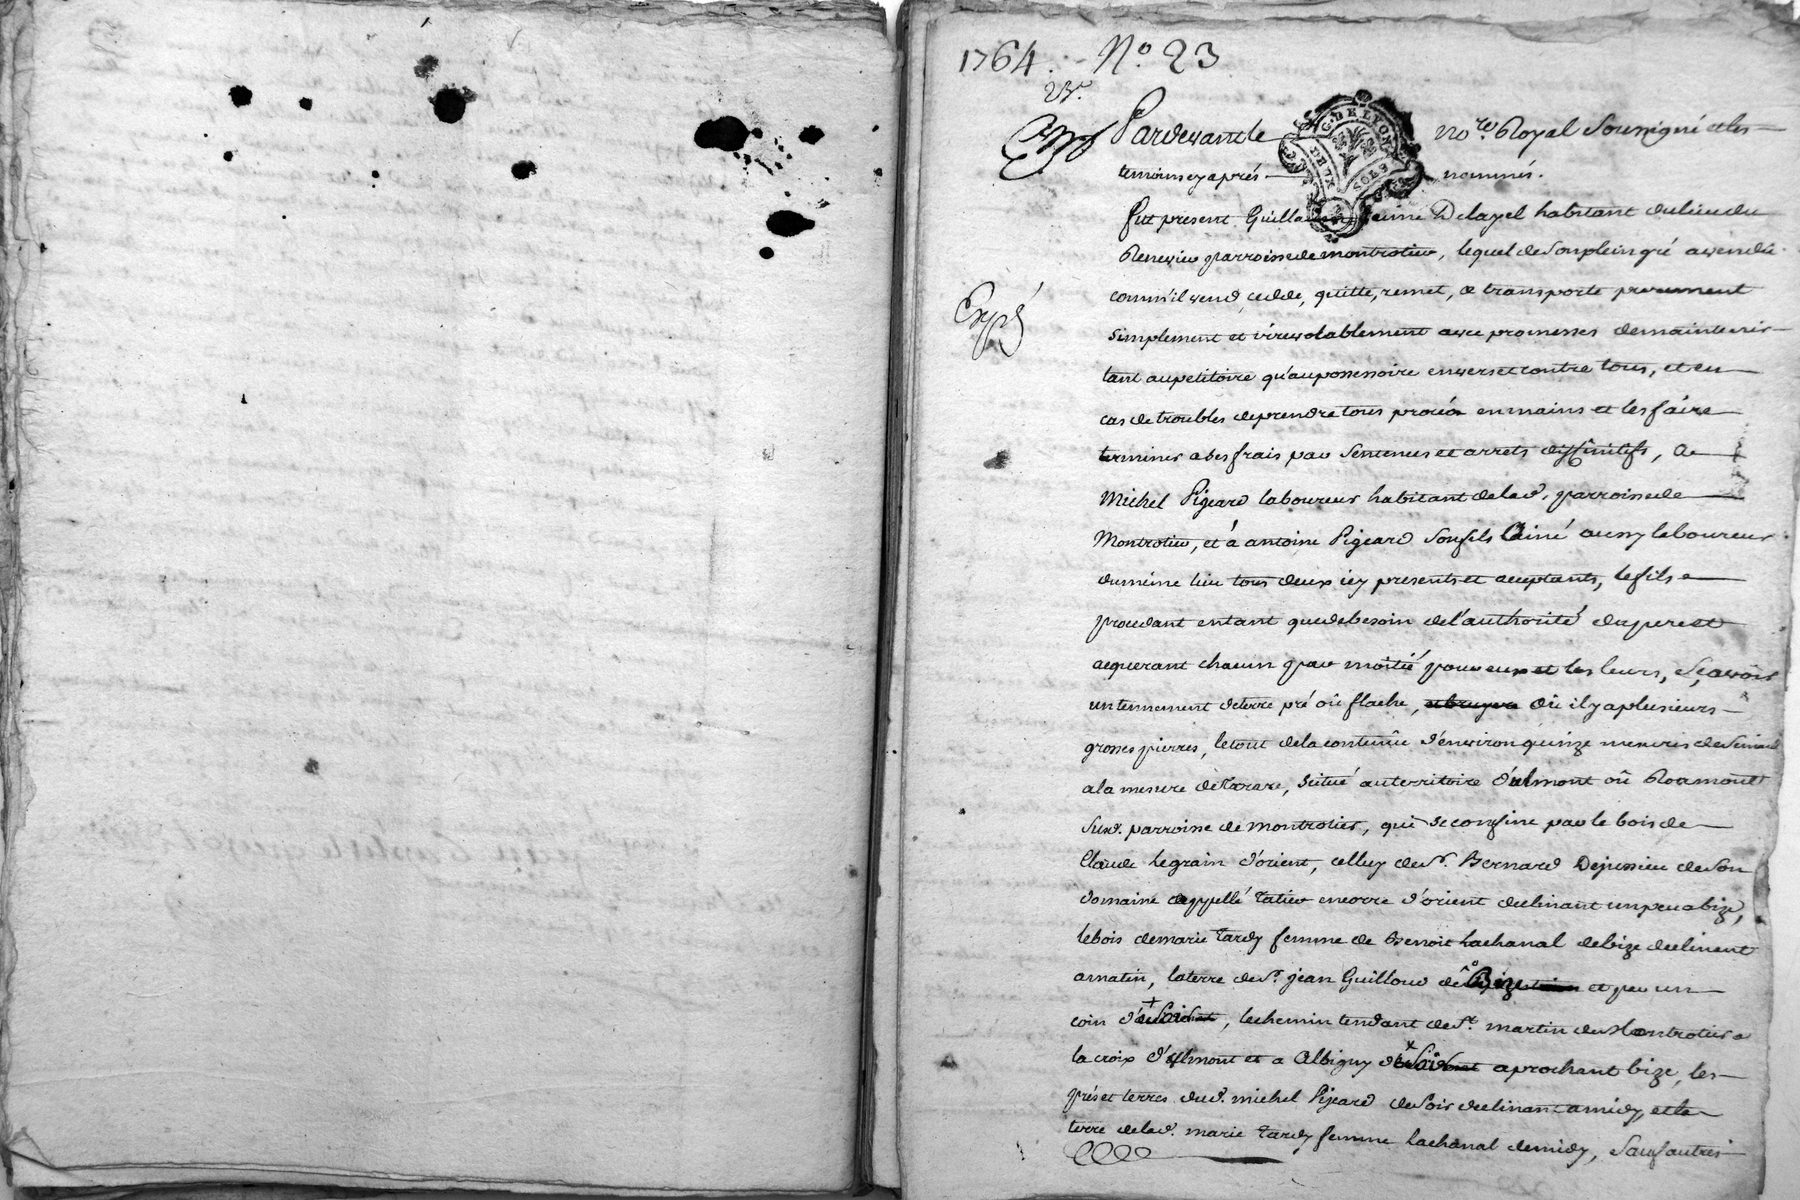 1764. - N° 23
23.e
Pardevant le no.re Royal Soussigné et les
temoins cy après nommés.
G. DE LYON
DEUX SOLS
fut present Guillaume jaime Delayel habitant du lieu du
Expé
parroisse de montrotier, lequel de son plein gré a vendu
comm'il vend cedde, quitte, remet, & transporte purement
simplement et irrevocablement avec promesses de maintenir
tant au petitoire qu'au possessoire envers et contre tous, et en
cas de troubles de prendre tous procès en mains et les faire
terminer a ses frais par Sentences et arrets diffinitifs, A
Michel Pigeard laboureur habitant de lad. parroisse de
Montrotier, et à antoine Pigeard son fils Ainé aussy laboureur
du même lieu tous deux icy presents et acceptants, le fils
procedant entant que de besoin de l'authorité du pere et
acquerant chacun par moitié pour eux et les leurs, Sçavoir
un tennement de terre pré où flache, et bruyere où il y a plusieurs
grosses pierres, le tout de la contenüe d'environ quinze mesures de Semaille
a la mesure de Tarare, scitué au territoire d'ulmont où Roumont
Susd. parroisse de montrotier, qui se confine par le bois de
Claude legrain d'orient, celluy de S.r Bernard Dejussieu de son
domaine appellé Tatier encorre d'orient declinant un peu a bize,
le bois de marie Tardy femme de Benoit Lachanal de bize declinent
a matin, la terre de S.r jean Guilloud de Bize et par un
coin de Soir, le chemin tendant de S.t martin de Montrotier a
la croix d'ulmont et a Albigny de Soir aprochant bize, les
prés et terres dud. michel Pigeard de Soir declinant a midy, et la
terre de lad. marie Tardy femme Lachanal de midy, Sauf autres